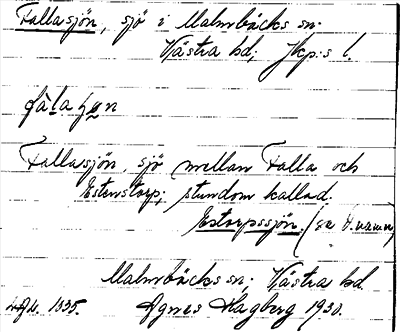 Fallasjön, sjö i Malmbäcks sn.
Västra hd; Jkp:s l.
Fallasjön, sjö mellan Falla och
Estenstorp; stundom kallad
Estorpssjön. (se d. namn)
Malmbäcks sn; Västra hd.
1835. Agnes Hagberg 1930.